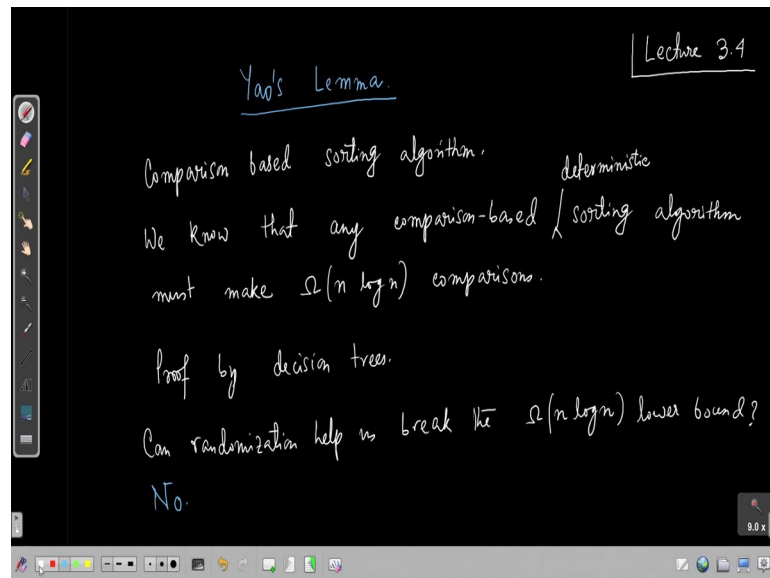 Lecture 3.4
Yao's Lemma.
Comparison based sorting algorithm.
deterministic
We know that any comparison-based sorting algorithm
must make Ω(n log n) comparisons.
Proof by decision trees.
Can randomization help us break the Ω(n log n) lower bound?
No.
9.0 x